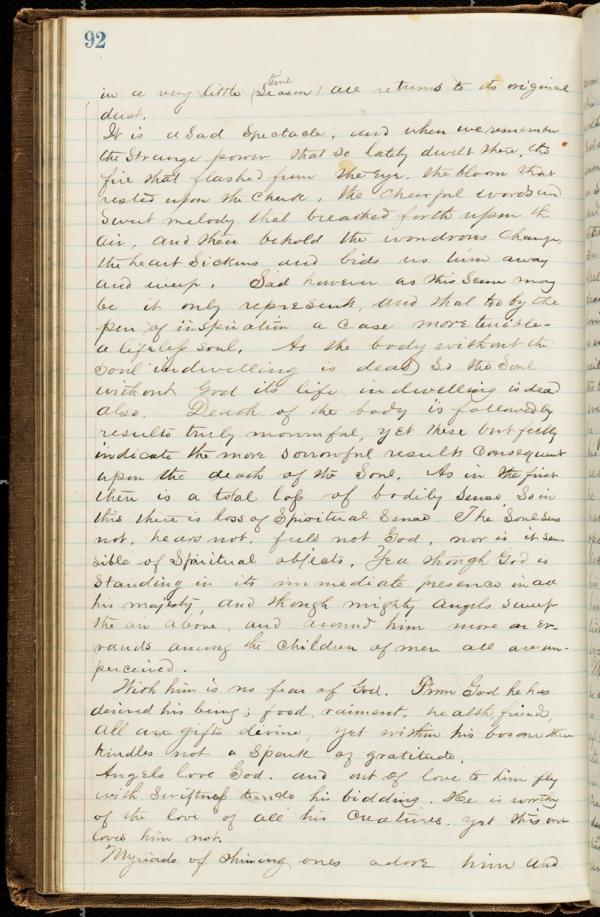 92
in a very little (Season) time all returns to its original
dust.
It is a Sad Spectacle, and when we remember
the Strange power that so lately dwelt there, the
fire that flashed from the eye. the bloom that
rested upon the Cheek, the Cheerful words and
Sweet melody that breathed forth upon the
air, and then behold the wondrous Change,
the heart Sickens and bids us turn away
and weep. Sad however as this Scene may
be it only represents, and that too by the
pen of inspiration a Case more terrible-
a lifeless Soul. As the body without the
Soul indwelling is dead So the Soul
without God its life indwelling is dead
also. Death of the body is followed by
results truly mournful, yet these but feebly
indicate the more Sorrowful results Consequent
upon the death of the Soul. As in the first
there is a total loss of bodily Sense So in
this there is loss of Spiritual Sense. The Soul Sees
not, hears not, feels not God, nor is it sen-
sible of Spiritual objects. Yea though God is
Standing in its immediate presence in all
his majesty, and though mighty angels Sweep
the air above, and around him more on Er-
rands among the Children of men all are un-
perceived.
With him is no fear of God. From God he has
derived his being; food, raiment, health, friends,
all are gifts divine, yet within his bosom there
kindles not a Spark of gratitude.
Angels love God. and out of love to him fly
with Swiftness to do his bidding. He is worthy
of the love of all his Creatures. yet this one
loves him not.
Myriads of shining ones adore him and